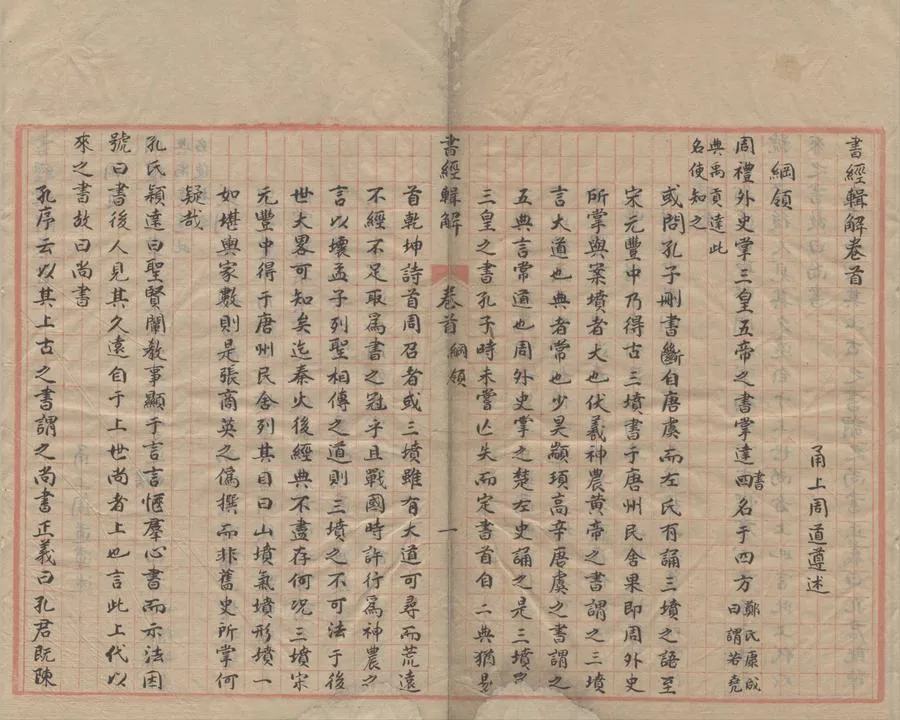 書經輯解卷首
甬上周道遵述
綱領
周禮外史掌三皇五帝之書掌達四書名于四方鄭氏康成曰謂若堯
典禹貢達此名使知之
或問孔子刪書斷自唐虞而左氏有誦三墳之語至
宋元豐中乃得古三墳書于唐州民舍果即周外史
所掌與案墳者大也伏羲神農黃帝之書謂之三墳
言大道也典者常也少昊顓頊高辛唐虞之書謂之
五典言常道也周外史掌之楚左史誦之是三墳為
三皇之書孔子時未嘗亾失而定書首自二典猶易
書經輯解 卷首 綱領 一
首乾坤詩首周召者或三墳雖有大道可尋而荒遠
不經不足取爲書之冠乎且戰國時許行爲神農之
言以壞孟子列聖相傳之道則三墳之不可法于後
世大畧可知矣迄秦火後經典不盡存何况三墳宋
元豐中得于唐州民舍列其目曰山墳氣墳形墳一
如堪輿家數則是張商英之僞撰而非舊史所掌何
疑哉
孔氏穎達曰聖賢闡教事顯于言言愜羣心書而示法因
號曰書後人見其久遠自于上世尚者上也言此上代以
來之書故曰尚書
孔序云以其上古之書謂之尚書正義曰孔君既陳